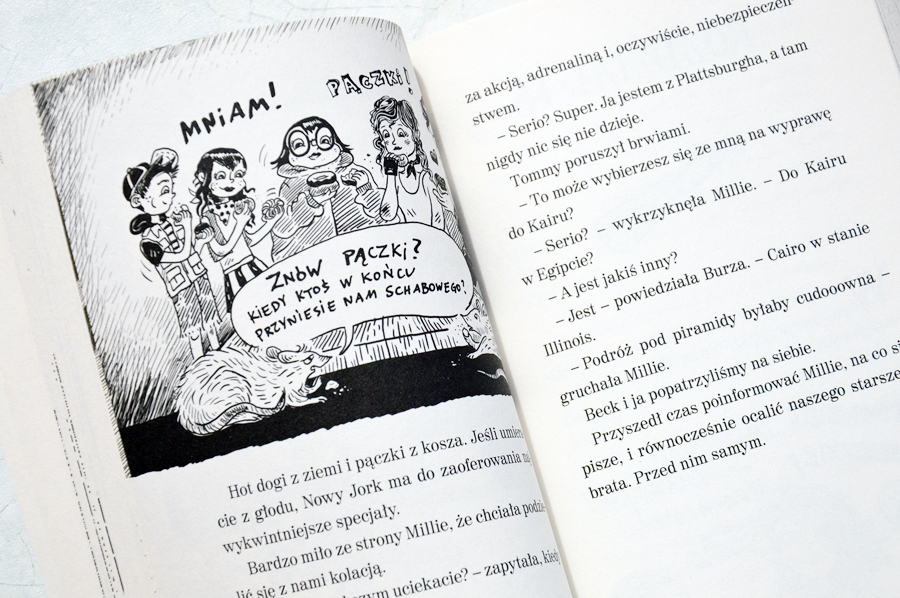 MNIAM!
PĄCZKI!
ZNÓW PĄCZKI?
KIEDY KTOŚ W KOŃCU
PRZYNIESIE NAM SCHABOWEGO?
Hot dogi z ziemi i pączki z kosza. Jeśli umiera-
cie z głodu, Nowy Jork ma do zaoferowania
wykwintniejsze specjały.
Bardzo miło ze strony Millie, że chciała podzie-
lić się z nami kolacją.
uciekacie? – zapytała, kiedy
za akcją, adrenaliną i, oczywiście, niebezpieczeń-
stwem.
– Serio? Super. Ja jestem z Plattsburgha, a tam
nigdy nic się nie dzieje.
Tommy poruszył brwiami.
– To może wybierzesz się ze mną na wyprawę
do Kairu?
– Serio? – wykrzyknęła Millie. – Do Kairu
w Egipcie?
– A jest jakiś inny?
– Jest – powiedziała Burza. – Cairo w stanie
Illinois.
– Podróż pod piramidy byłaby cudooowna –
gruchała Millie.
Beck i ja popatrzyliśmy na siebie.
Przyszedł czas poinformować Millie, na co się
pisze, i równocześnie ocalić naszego starszego
brata. Przed nim samym.